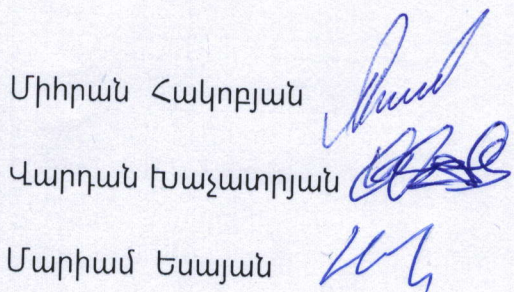 Միհրան Հակոբյան
Վարդան Խաչատրյան
Մարիամ Եսայան